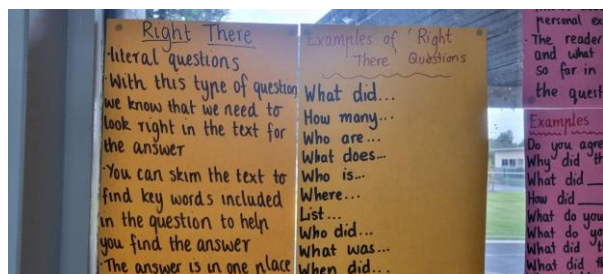 Right There
·literal questions
·With this type of question
we know that we need to
look right in the text for
the answer
·You can skim the text to
find key words included
in the question to help
you find the answer
·The answer is in one place
Examples of "Right
There" Questions
What did...
How many...
Who are...
What does...
Who is...
Where...
List...
Who did...
What was...
When did...
personal ex
·The reader
and what
so far in
the quest
Examples
Do you agre
Why did th
What did __
How did __
What do you
What do yo
What did t
What did th